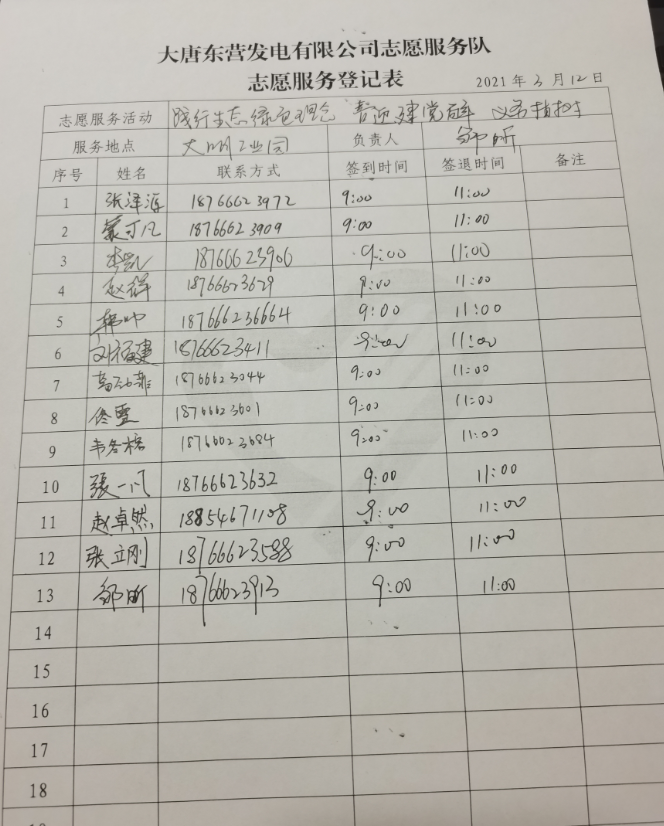 大唐东营发电有限公司志愿服务队
志愿服务登记表
2021年3月12日
志愿服务活动 践行生态绿色理念 喜迎建党 义务植树
服务地点 大明工业园 负责人 邹昕
序号 姓名 联系方式 签到时间 签退时间 备注
1 张泽涯 18766623972 9:00 11:00
2 蒙可凡 18766623909 9:00 11:00
3 李凯 18766623906 9:00 11:00
4 赵祥 18766623629 9:00 11:00
5 韩帅 187666236664 9:00 11:00
6 刘福建 18766623411 9:00 11:00
7 18766623044 9:00 11:00
8 佟雪 18766623601 9:00 11:00
9 韦冬格 18766623684 9:00 11:00
10 张一凡 18766623632 9:00 11:00
11 赵卓然 18854671108 9:00 11:00
12 张立刚 18766623588 9:00 11:00
13 邹昕 18766623913 9:00 11:00
14
15
16
17
18